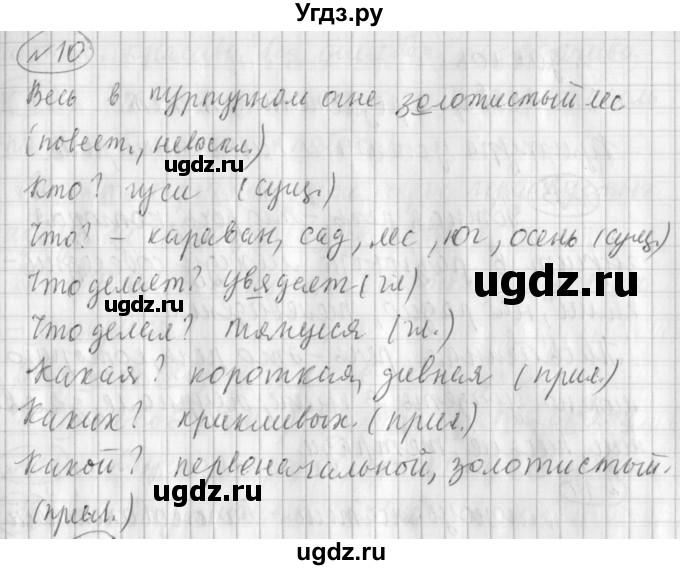 Угдз.ру
№10
Весь в пурпурном огне золотистый лес
(повест., невоскл.)
угдз.ру
Кто? гуси (сущ.)
Что? – караван, сад, лес, юг, осень (сущ.)
Что делает? увядает (гл)
ugdz.ru
Что делал? тянулся (гл.)
ugdz.ru
Какая? короткая, дивная (прил.)
Каких? крикливых. (прил.)
ugdz.ru
Какой? первоначальной, золотистый.
ugdz.ru
(прил.)
ugdz.ru